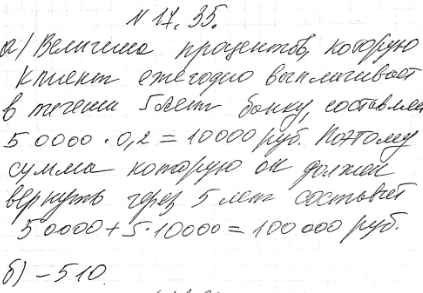 N 17.35.
а) Величина процентов, которую
клиент ежегодно выплачивает
в течении 5 лет банку, составляе
50000 · 0,2 = 10000 руб. Поэтому
сумма которую он должен
вернуть через 5 лет составит
50000 + 5·10000 = 100 000 руб.
б) - 510.